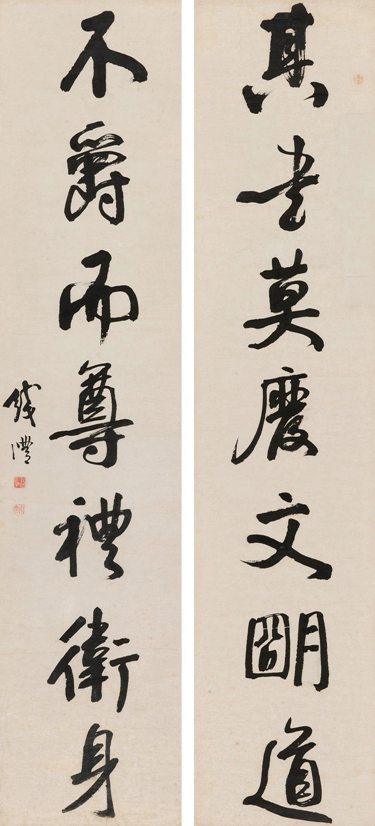 其書莫廢文朙道
不爵而尊禮衛身
錢灃